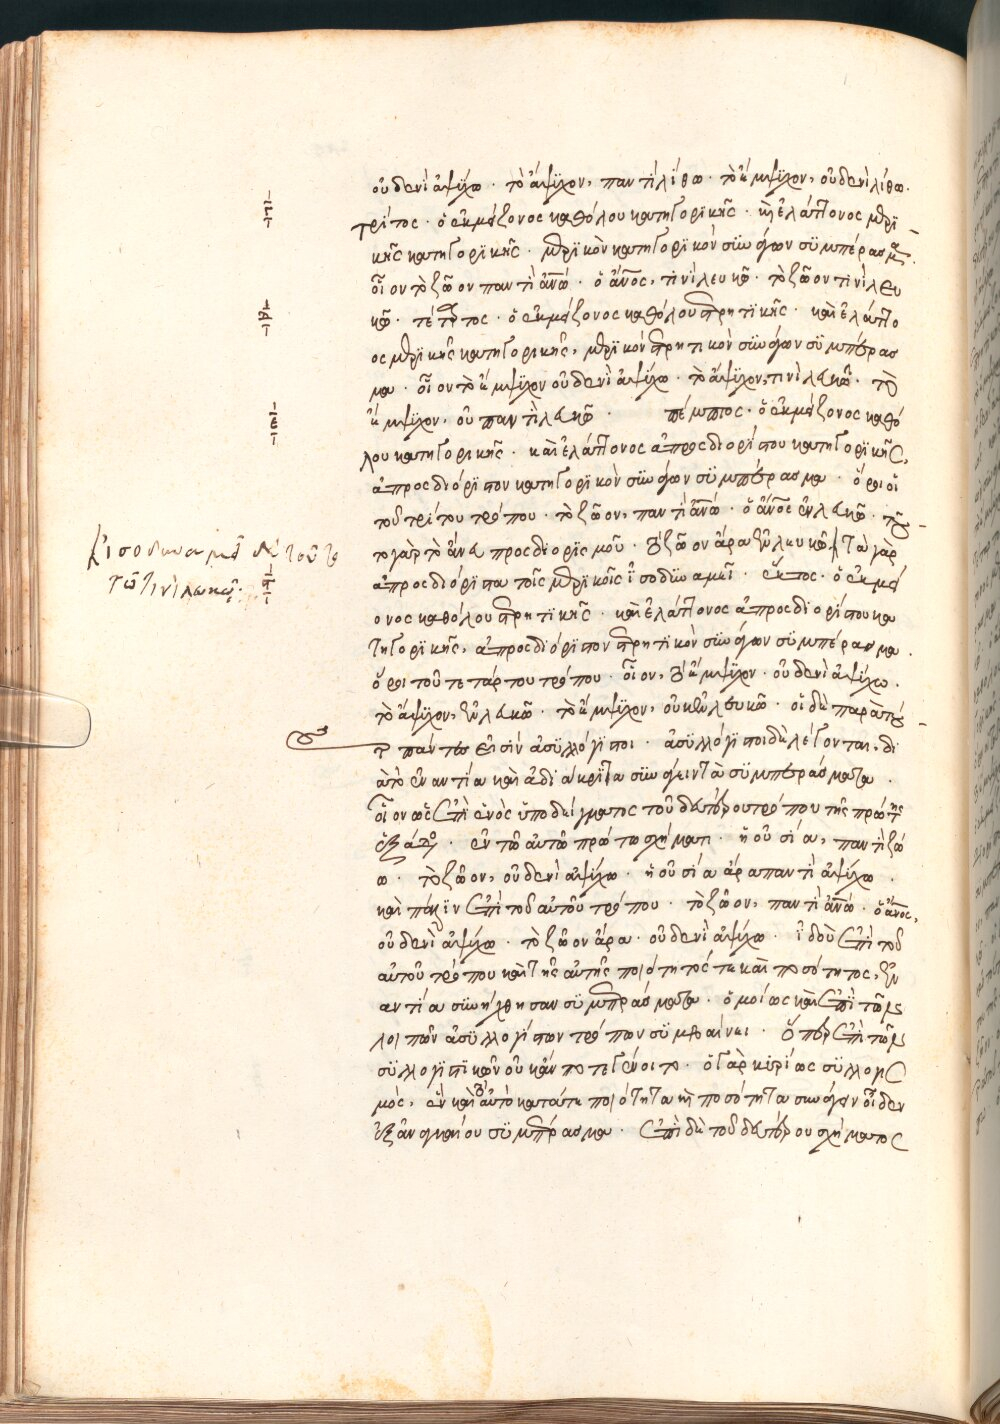 οὐδενὶ ἀψύχω · τὸ ἄψυχον, παντὶ λίθω · τὸ ἔμψυχον, οὐδενὶ λίθω.
γ
τρίτος · ὁ ἐκ μείζονος καθόλου κατηγορικῆς · κὴ ἐλάττονος μερι
κῆς κατηγορικῆς · μερικὸν κατηγορικὸν συνάγων συμπέρασμα.
οἷον τὸ ζῶον παντὶ ἀνῶ · ὁ ἄνος, τινὶ λευκῶ · τὸ ζῶον τινὶ λευ
δ
κῶ · τέταρτος · ὁ ἐκ μείζονος καθόλου στερητικῆς · καὶ ἐλάττο
ος μερικῆς κατηγορικῆς, μερικὸν στερητικὸν συνάγων συμπέρασ
μα · οἷον τὸ ἔμψυχον οὐδενὶ ἀψύχω · τὸ ἄψυχον, τινὶ λευκῶ · τὸ
ε
ἔμψυχον, οὐ παντὶ λευκῶ · πέμπτος · ὁ ἐκ μείζονος καθό
λου κατηγορικῆς · καὶ ἐλάττονος ἀπροσδιορίστου κατηγορικῆς,
ἀπροσδιόριστον κατηγορικὸν συνάγων συμπέρασμα · ὅροι οἱ
τοῦ τρίτου τρόπου · τὸ ζῶον, παντὶ ἀνῶ · ὁ ἄνος ἐν λευκῶ ·
ἰσοδυναμεῖ
τὸ γὰρ τὸ ἄνευ προσδιορισμοῦ · τὸ ζῶον ἄρα ἐν λευκῶ τὰ γὰρ
τῶ τινὶ λευκῶ.
ς
ἀπροσδιόριστα τοῖς μερικοῖς ἰσοδυναμεῖ · ἕκτος · ὁ ἐκ μεί
ονος καθόλου στερητικῆς · καὶ ἐλάττονος ἀπροσδιορίστου κα
τηγορικῆς, ἀπροσδιόριστον στερητικὸν συνάγων συμπέρασμα ·
ὅροι τοῦ τετάρτου τρόπου · οἷον, τὸ ἔμψυχον · οὐδενὶ ἀψύχω ·
τὸ ἄψυχον, ἐν λευκῶ · τὸ ἔμψυχον, οὐκ ἐν λευκῶ · οἱ δὲ παρὰ
πάντες εἰσὶν ἀσυλλόγιστοι · ἀσυλλόγιστοι δὲ λέγονται, δι
ὰ τὸ ἐναντία καὶ ἀδιάκριτα συνάγειν τὰ συμπεράσματα ·
οἷον ὡς ἐπὶ ἑνὸς ὑποδείγματος τοῦ δευτέρου τρόπου τῆς πρώτης
ἐν τῶ αὐτῶ πρώτω σχήματι · ἡ οὐσία, παντὶ ζώ
ω · τὸ ζῶον, οὐδενὶ ἀψύχω · ἡ οὐσία ἄρα παντὶ ἀψύχω ·
καὶ πάλιν ἐπὶ τοῦ αὐτοῦ τρόπου · τὸ ζῶον, παντὶ ἀνῶ · ὁ ἄνος,
οὐδενὶ ἀψύχω · τὸ ζῶον ἄρα · οὐδενὶ ἀψύχω · ἰδοὺ ἐπὶ τοῦ
αὐτοῦ τρόπου καὶ τῆς αὐτῆς ποιότητός τε καὶ ποσότητος, ἐν
αντία συνήχθησαν συμπεράσματα · ὁμοίως καὶ ἐπὶ τῶν
λοιπῶν ἀσυλλογίστων τρόπων συμβαίνει · ὅπερ ἐπὶ τῶν
συλλογιστικῶν οὐκ ἄν ποτε γένοιτο · ὁ γὰρ κυρίως συλλογις
μός, ἓν καὶ τὸ αὐτὸ κατά τε ποιότητα κὴ ποσότητα συνάγειν οἶδεν
ἐξ ἀναγκαίου συμπέρασμα · ἐπὶ δὲ τοῦ δευτέρου σχήματος